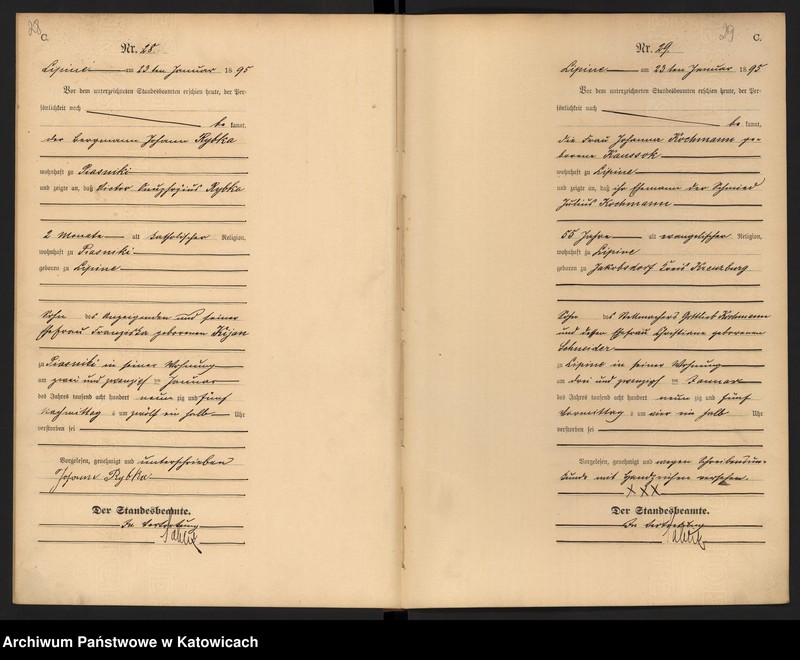 28
C.
Nr. 28
Lipine am 23ten Januar 1895
Vor dem unterzeichneten Standesbeamten erschien heute, der Per-
sönlichkeit nach
be kannt,
der Bergmann Johann Rybka
wohnhaft zu Piasniki
und zeigte an, daß Victor Rybka
2 Monate alt katholischer Religion,
wohnhaft zu Piasniki
geboren zu Lipine
Sohn des Anzeigenden und seiner
Ehefrau Franziska geborenen Kijan
zu Piasniki in seiner Wohnung
am zwei und zwanzigsten Januar
des Jahres tausend acht hundert neun zig und fünf
Nachmittag s um zwölf ein halb Uhr
verstorben sei
Vorgelesen, genehmigt und unterschrieben
Johann Rybka
Der Standesbeamte.
In Vertretung
29
C.
Nr. 29
Lipine am 23ten Januar 1895
Vor dem unterzeichneten Standesbeamten erschien heute, der Per-
sönlichkeit nach
be kannt,
die Frau Johanna Kochmann ge-
borene Kaussok
wohnhaft zu Lipine
und zeigte an, daß ihr Ehemann der Schmied
Julius Kochmann
55 Jahre alt evangelischer Religion,
wohnhaft zu Lipine
geboren zu Jakobsdorf Kreis Kreuzburg
Sohn des Stellmachers Gottlieb Kochmann
und dessen Ehefrau Christiane geborenen
Schneider
zu Lipine in seiner Wohnung
am drei und zwanzigsten Januar
des Jahres tausend acht hundert neun zig und fünf
Vormittag s um vier ein halb Uhr
verstorben sei
Vorgelesen, genehmigt und wegen Schreibensun-
kunde mit Handzeichen versehen.
XXX
Der Standesbeamte.
In Vertretung
Archiwum Państwowe w Katowicach